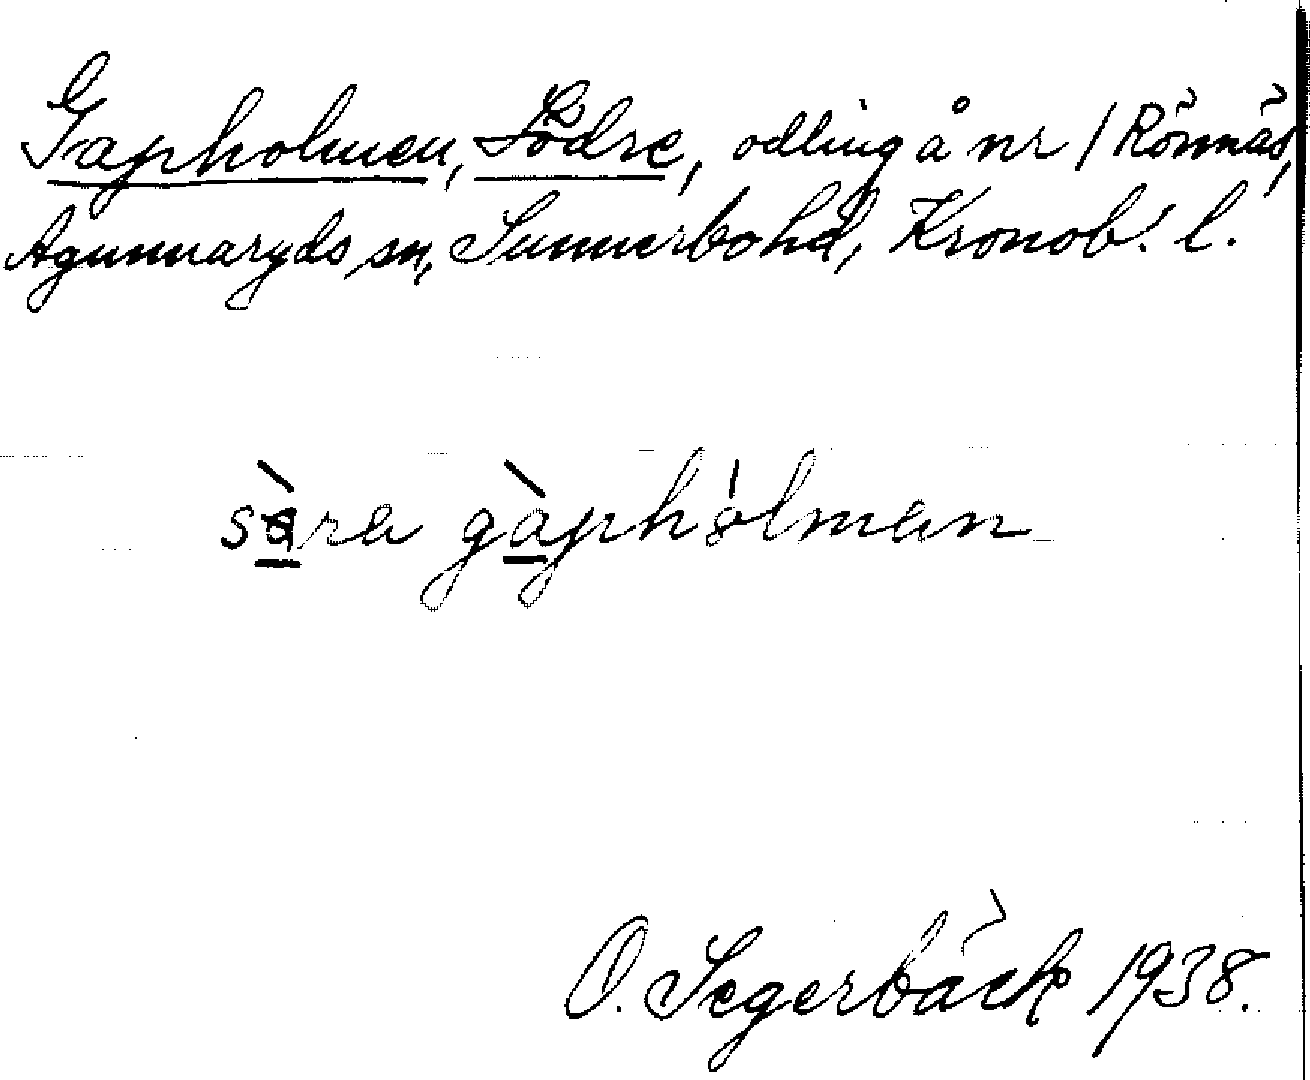 Gapholmen, Södre, odling å nr 1 Rönnäs,
Agunnaryds sn, Sunnerbo hd, Kronob. l.
sàra gàphòlman
O. Segerbäck 1938.